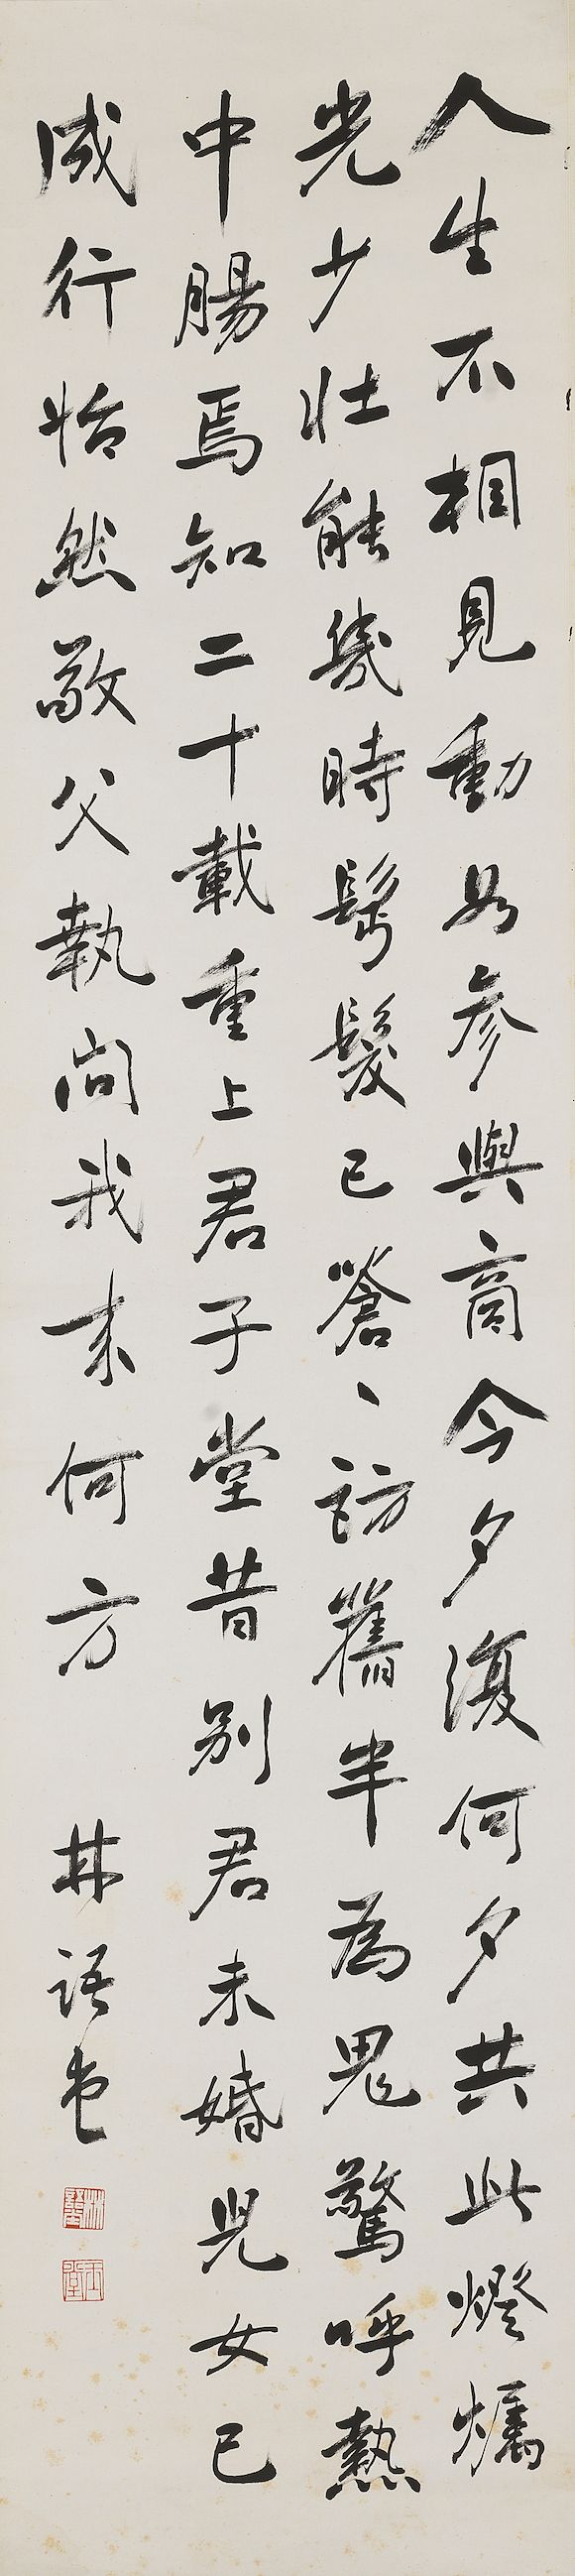 人生不相見動如參與商今夕復何夕共此燈燭
光少壯能幾時鬢髮已蒼丶訪舊半為鬼驚呼熱
中腸焉知二十載重上君子堂昔別君未婚兒女已
成行怡然敬父執問我來何方 林語堂